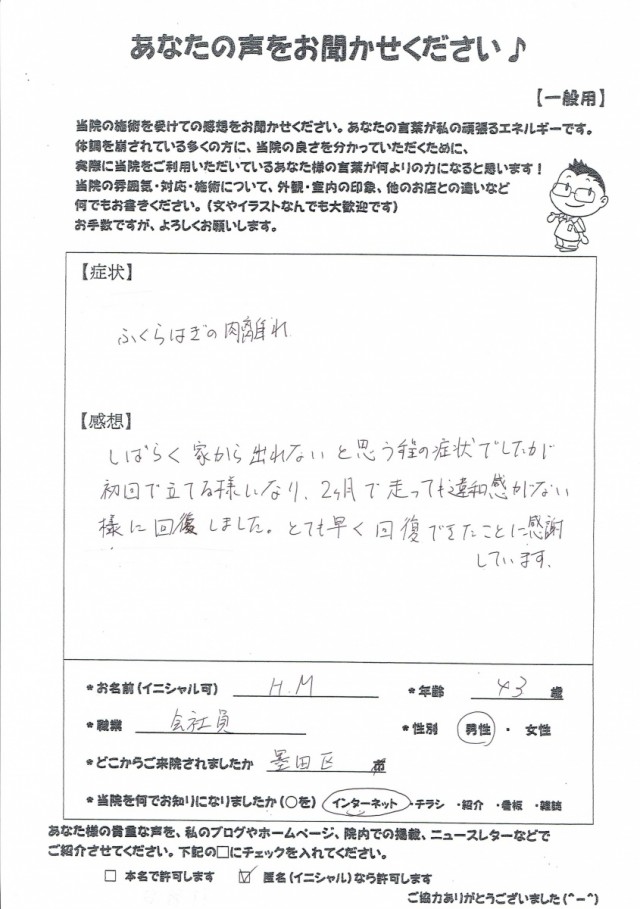 あなたの声をお聞かせください♪
【一般用】
当院の施術を受けての感想をお聞かせください。あなたの言葉が私の頑張るエネルギーです。
体調を崩されている多くの方に、当院の良さを分かっていただくために、
実際に当院をご利用いただいているあなた様の言葉が何よりの力になると思います!
当院の雰囲気・対応・施術について、外観・室内の印象、他のお店との違いなど
何でもお書きください。(文やイラストなんでも大歓迎です)
お手数ですが、よろしくお願いします。
【症状】
ふくらはぎの肉離れ
【感想】
しばらく家から出れないと思う程の症状でしたが
初回で立てる様になり、2ヶ月で走っても違和感がない
様に回復しました。とても早く回復できたことに感謝
しています。
*お名前(イニシャル可) H.M *年齢 43 歳
*職業 会社員 *性別 男性 ・ 女性
*どこからご来院されましたか 墨田区
*当院を何でお知りになりましたか(○を) インターネット ・チラシ ・紹介 ・看板 ・雑誌
あなた様の貴重な声を、私のブログやホームページ、院内での掲載、ニュースレターなどで
ご紹介させてください。下記の□にチェックを入れてください。
□ 本名で許可します ☑ 匿名(イニシャル)なら許可します
ご協力ありがとうございました(^-^)